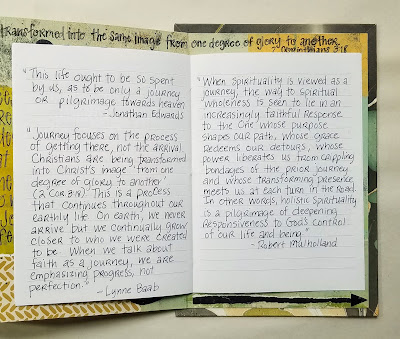 transformed into the same image from one degree of glory to another
2 Corinthians 3:18
"This life ought to be so spent
by us, as to be only a journey
or pilgrimage towards heaven
- Jonathan Edwards
"Journey focuses on the process
of getting there, not the arrival.
Christians are being transformed
into Christ's image "from one
degree of glory to another"
(2 Cor 3:18) This is a process
that continues throughout our
earthly life. On earth, we never
arrive but we continually grow
closer to who we were created
to be. When we talk about
faith as a journey, we are
emphasizing progress, not
perfection."
- Lynne Baab
"When spirituality is viewed as a
journey, the way to spiritual
wholeness is seen to lie in an
increasingly faithful response
to the One whose purpose
shapes our path, whose grace
redeems our detours, whose
power liberates us from crippling
bondages of the prior journey
and whose transforming presence
meets us at each turn in the road.
In other words, holistic spirituality
is a pilgrimage of deepening
responsiveness to God's control
of our life and being."
- Robert Mulholland